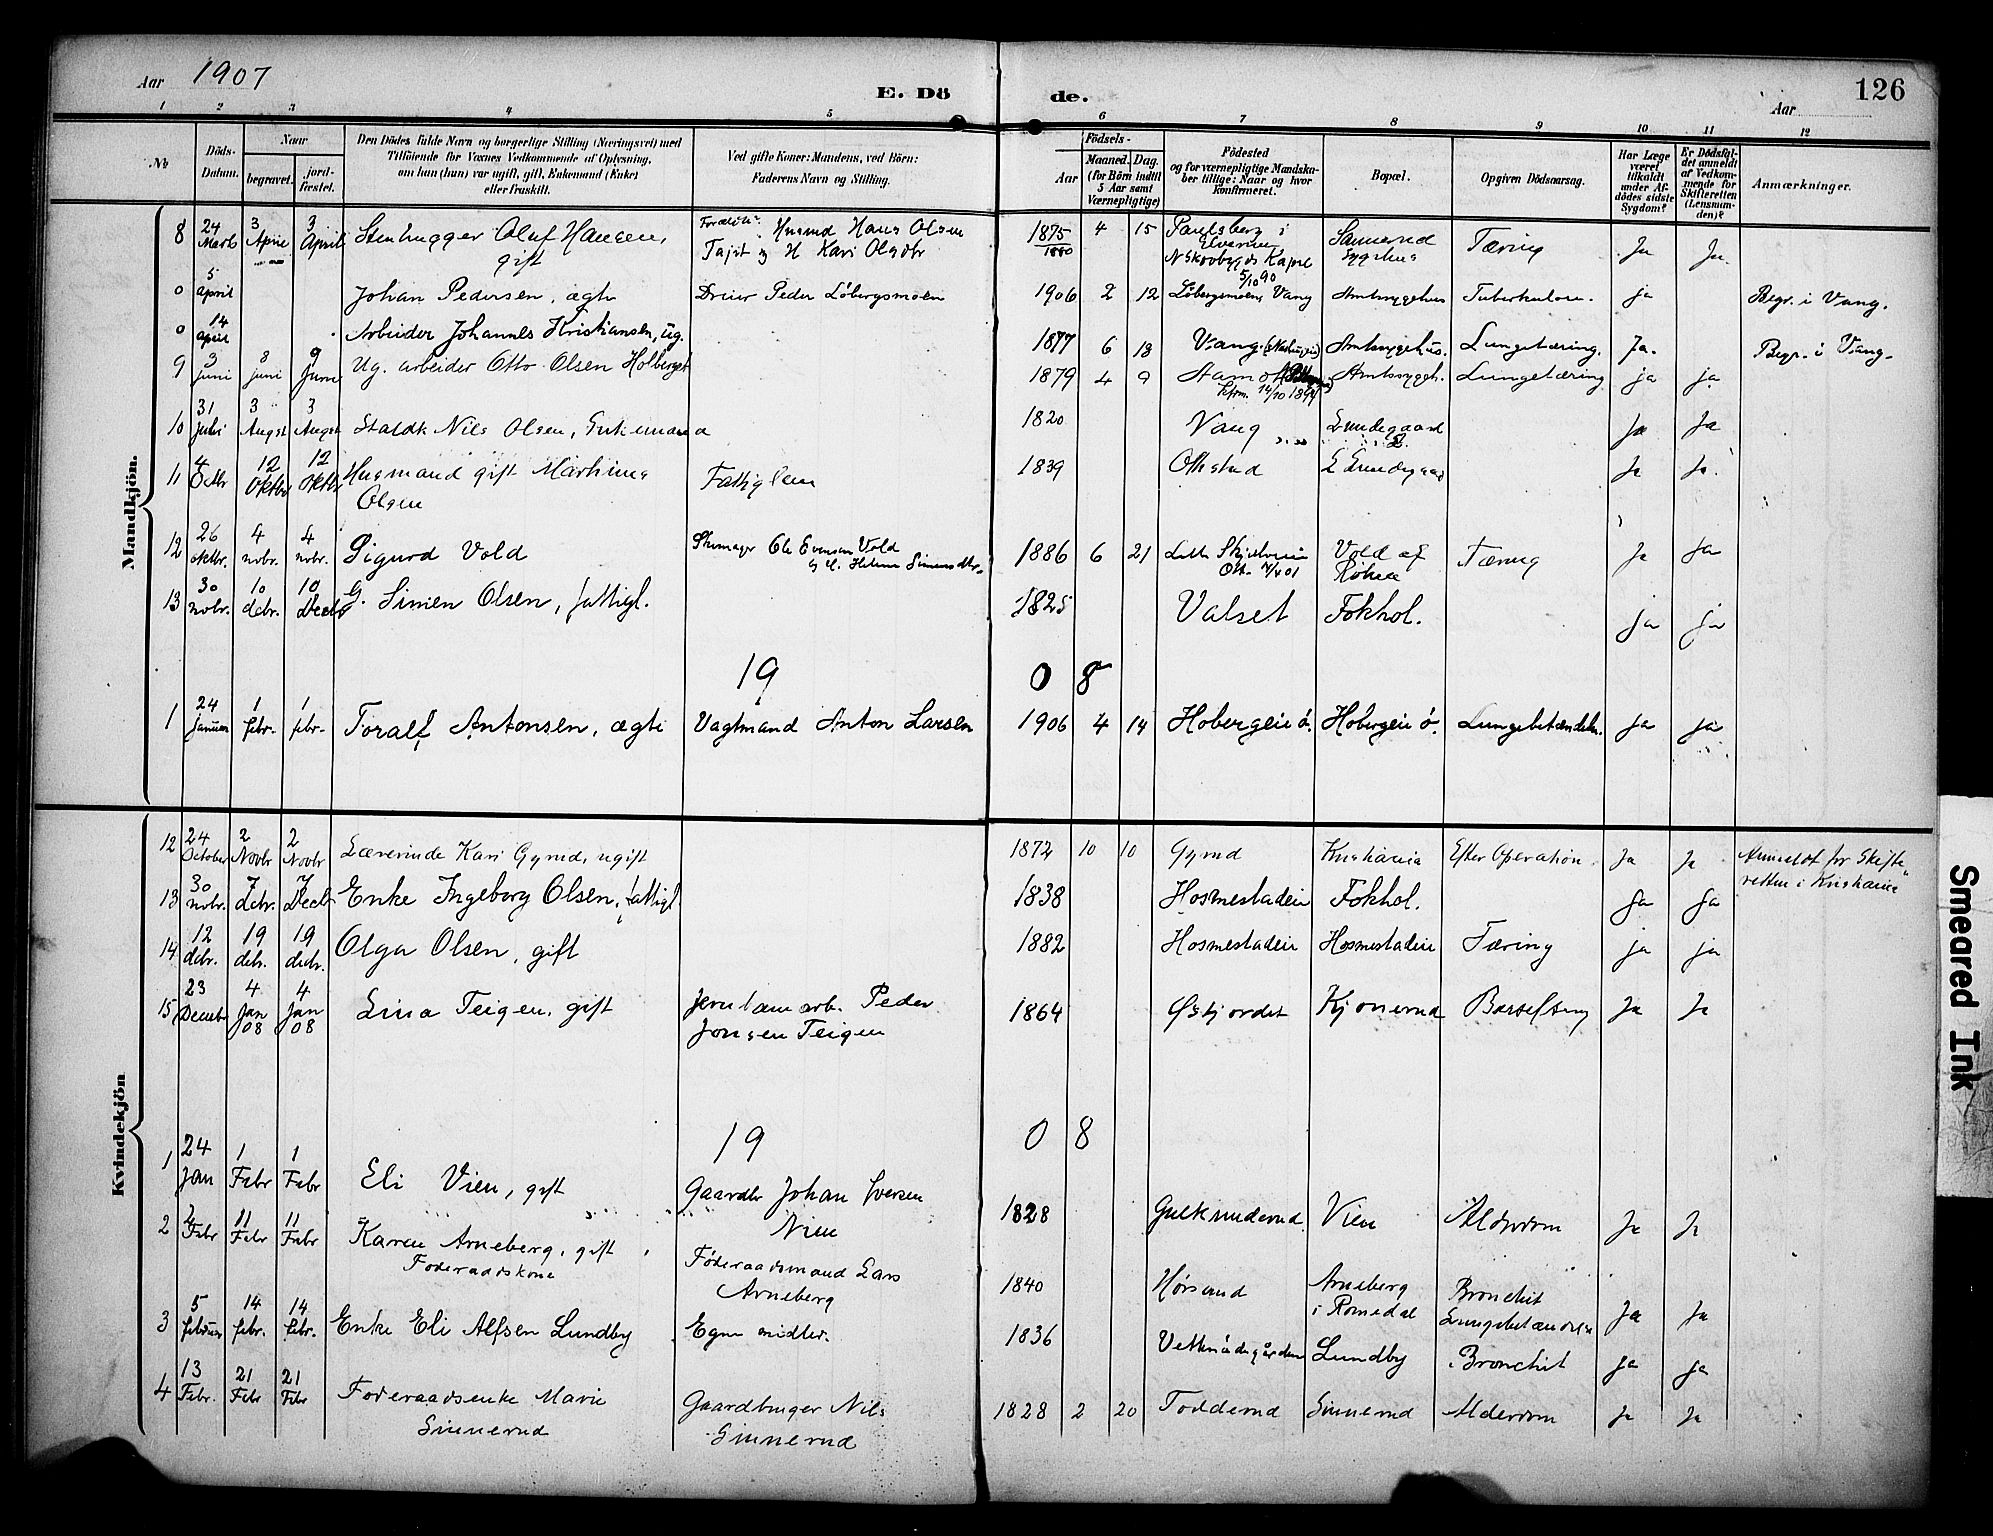 Aar 1907
E. Dö de.
Aar
126
1 2 3 4 5 6 7 8 9 10 11 12
No
Döds-Datum.
Naar
begravet.
jord-fæstet.
Den Dödes fulde Navn og borgerlige Stilling (Næringsvei) med
Tilföiende for Voxnes Vedkommende af Oplysning,
om han (hun) var ugift, gift, Enkemand (Enke)
eller fraskilt.
Ved gifte Koner: Mandens, ved Börn:
Faderens Navn og Stilling.
Födsels-
Aar
Maaned. Dag.
(for Börn indtil
5 Aar samt
Værnepligtige)
Födested
og for værnepligtige Mandska-
ber tillige: Naar og hvor
konfirmeret.
Bopæl.
Opgiven Dödsaarsag.
Har Læge
været
tilkaldt
under Af-
dödes sidste
Sygdom?
Er Dödsfal-
det anmeldt
af Vedkom-
mende for
Skifteretten
(Lensman-
den)?
Anmærkninger.
Mandkjön.
8 24 Marts 3 April 3 April Stenhugger Oluf Hansen, gift Husmd Hans Olsen og H Kari Olsdtr 1875 4 15 Paulsberg i Elverum 5/10 90 Sannerud Sygehus Tæring Ja Ja
0 5 april Johan Pedersen, ægte Dreier Peder Løbergsmoen 1906 2 12 Løbergsmoen, Vang Amtssygehus Tuberkulose. ja Begr. i Vang.
0 14 april Arbeider Johannes Kristiansen, ug. 1877 6 18 Vang Amtssygehus. Lungetæring. Ja. Begr. i Vang.
9 3 juni 8 juni 9 juni Ug. arbeider Otto Olsen Holberget 1879 4 9 Aamot Kfrm. 14/10 1894 Amtssygeh. Lungetæring ja ja
10 31 Juli 3 Augst 3 Augst Staldk Nils Olsen, Enkemand 1820 Vang Lundegaard Ja Ja
11 4 Octbr 12 Oktbr 12 Oktbr Husmand gift Martinus Olsen Fattiglem 1839 Ottestad Ja Ja
12 26 oktbr. 4 nobr. 4 nobr. Sigurd Vold Skomager Ole Evensen Vold og H. Helene Simensdtr. 1886 6 21 Vold af Røhne Tæring Ja Ja
13 30 nobr. 10 dcbr. 10 Decbr G. Simen Olsen, fattigl. 1825 Valset Fokhol. Ja Ja
19 08
1 24 Januar 1 febr. 1 febr. Toralf Antonsen, ægte Vagtmand Anton Larsen 1906 4 14 Hobergeie ø. Hobergeie ø. Lungebetændelse. Ja Ja
Kvindekjön
12 24 October 2 Novbr 2 Novbr Lærerinde Kari Gyrud, ugift 1872 10 10 Gyrud Kristiania Efter Operation Ja Ja Anmeldt for Skifte-
retten i Kristiania
13 30 nobr. 7 dcbr. 7 Decbr Enke Ingeborg Olsen, fattigl. 1838 Hosmestadeie Fokhol. Ja Ja
14 12 dcbr. 19 dcbr. 19 dcbr. Olga Olsen, gift 1882 Hosmestadeie Hosmestadeie Tæring ja ja
15 23 Decmbr 4 Jan 08 4 Jan 08 Lina Teigen, gift Jernbanearb. Peder Jonsen Teigen 1864 Østjordet Kjonerud Barselseng Ja Ja
19 08
1 24 Jan 1 Febr 1 Febr Eli Vien, gift Gaardbr Johan Iversen Vien 1828 Gulknuderud Vien Alderdom Ja Ja
2 2 Febr 11 Febr 11 Febr Karen Arneberg, gift Føderaadskone Føderaadsmand Lars Arneberg 1840 Hørsand Arneberg i Romedal Bronchit Lungebetændelse Ja Ja
3 5 februar 14 febr. 14 febr. Enke Eli Alfsen Lundby Egne midler. 1836 Lundby Bronchit ja ja
4 13 Febr. 21 Febr 21 Febr Føderaadsenke Marie Sinnerud Gaardbruger Nils Sinnerud 1828 2 20 Todderud Sinnerud Alderdom Ja Ja
Smeared Ink